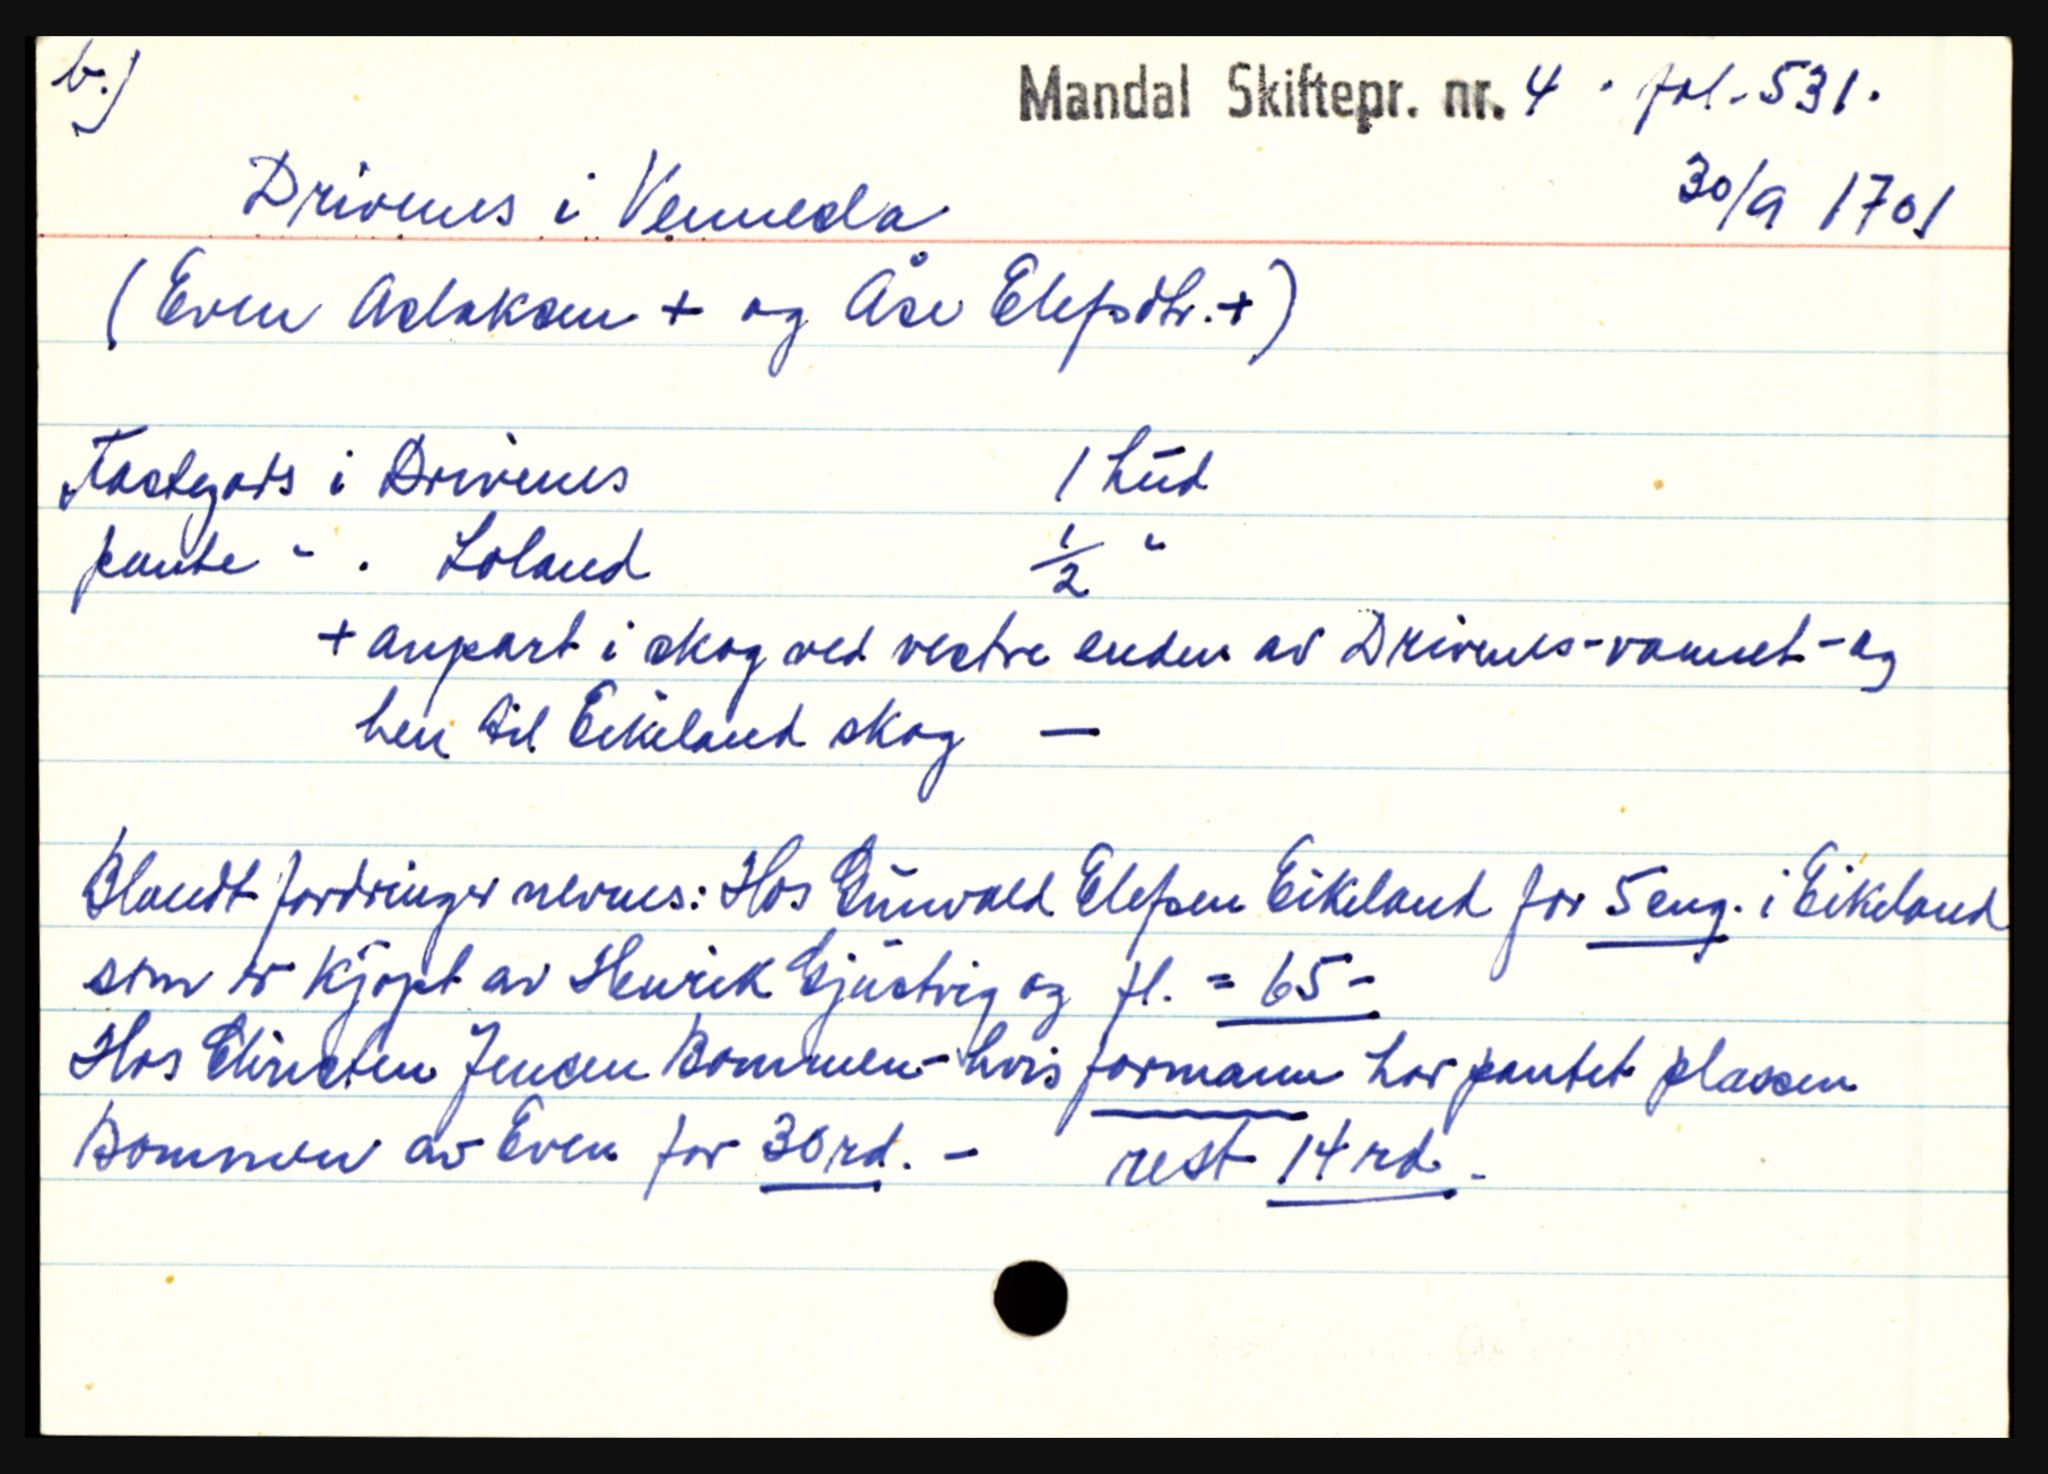 b.)
Mandal Skiftepr. nr. 4 . fol. 531.
30/9 1701
Drivenes i Vennesla
(Even Aslaksen + og Åse Elefsdtr. +)
Fastegods i Drivenes 1 hud
pante " . Loland 1/2 "
+ anpart i skog ved vestre enden av Drivenes-vannet - og
hen til Eikeland skog —
Blandt fordringer nevnes: Hos Gunvald Elefsen Eikeland for 5 eng. i Eikeland
som er kjøpt av Henrik Gjustvig og fl. = 65 -
Hos Christen Jensen Bommen - hvis formann har pantet plassen
Bommen av Even for 30 rd. - rest 14 rd. -